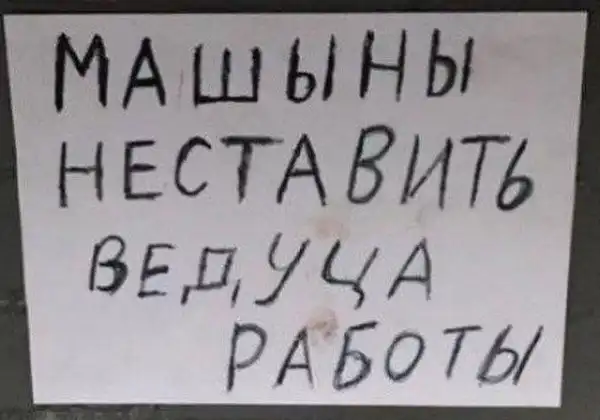 МАШЫНЫ
НЕСТАВИТЬ
ВЕДУЦА
РАБОТЫ